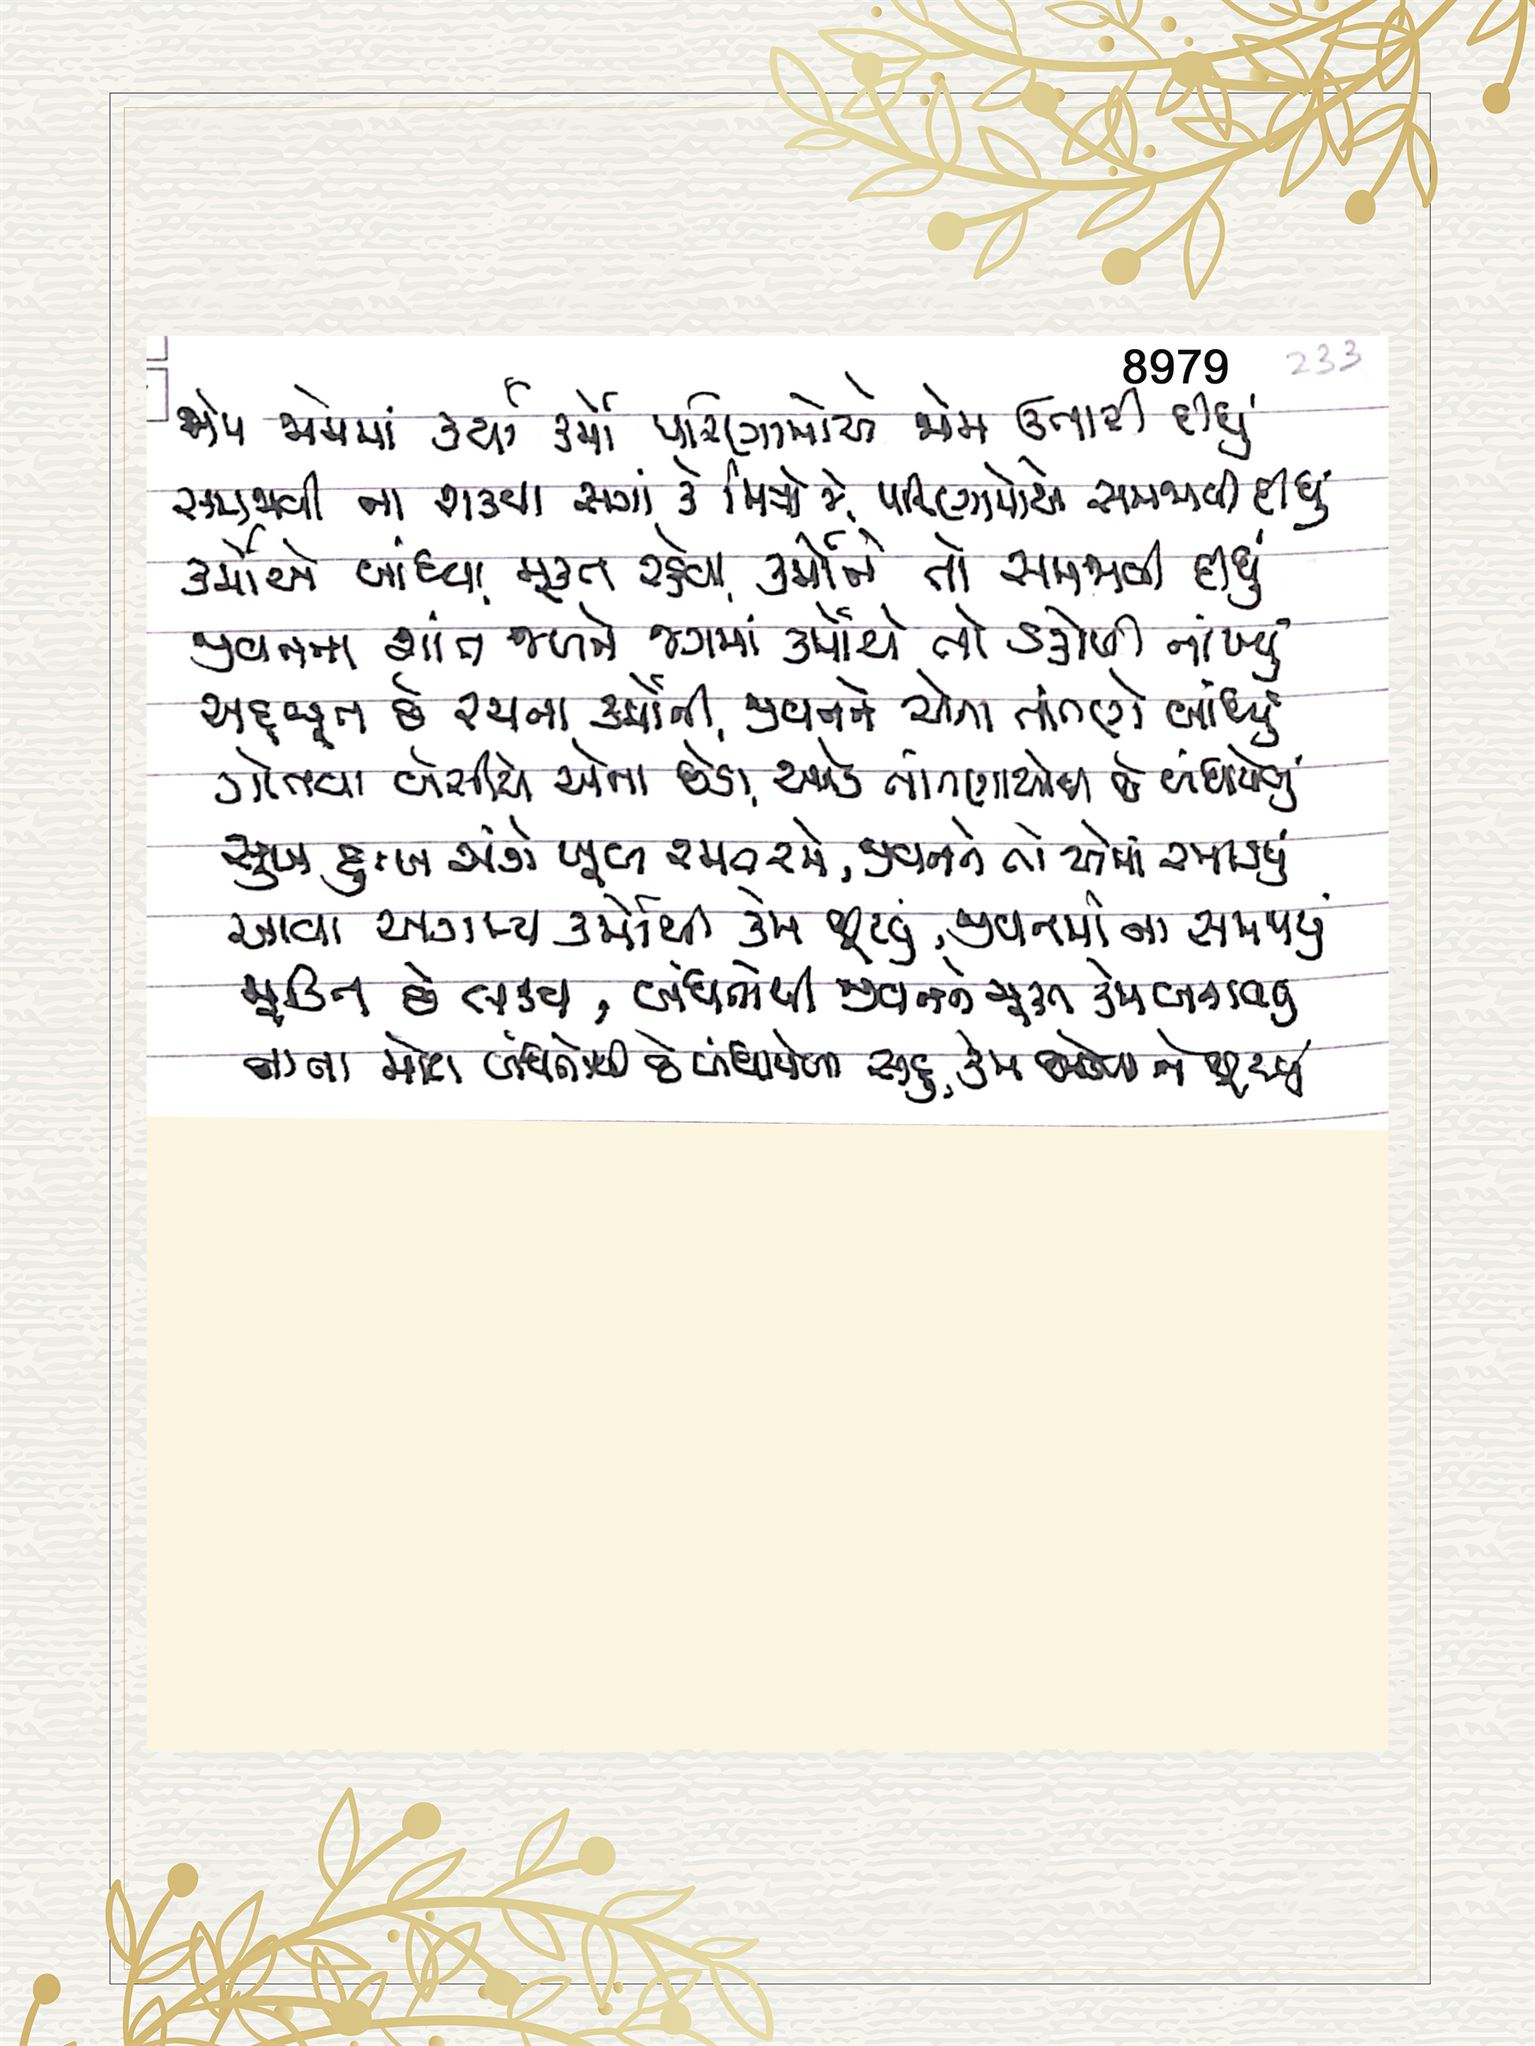 8979
233
જોમ જોમમાં કર્યા કર્મો પરિણામોએ જોમ ઉતારી દીધું
સમજાવી ના શક્યા સગાં કે મિત્રો જે, પરિણામોએ સમજાવી દીધું
કર્મોએ બાંધ્યા, મૂક્ત રહેવા, કર્મોને તો સમજાવી દીધું
જીવનના શાંત જળને જગમાં કર્મોએ તો ડહોળી નાંખ્યું
અદ્ભૂત છે રચના કર્મોની, જીવનને એના તાંતણે બાંધ્યું
ગોતવા બેસીએ એના છેડા, અનેક તાંતણાઓથી છે બંધાયેલું
સુખ દુઃખ અંગે ખૂબ રમત રમે, જીવનને તો એમાં રમાડયું
આવા અગમ્ય કર્મોથી કેમ છૂટવું, જીવનમાં ના સમજાયું
મૂક્તિ છે લક્ષ્ય, બંધનોથી જીવનને મૂક્ત કેમ બનાવવું
નાના મોટા બંધનોથી છે બંધાયેલા સહુ, કેમ ને છૂટવું